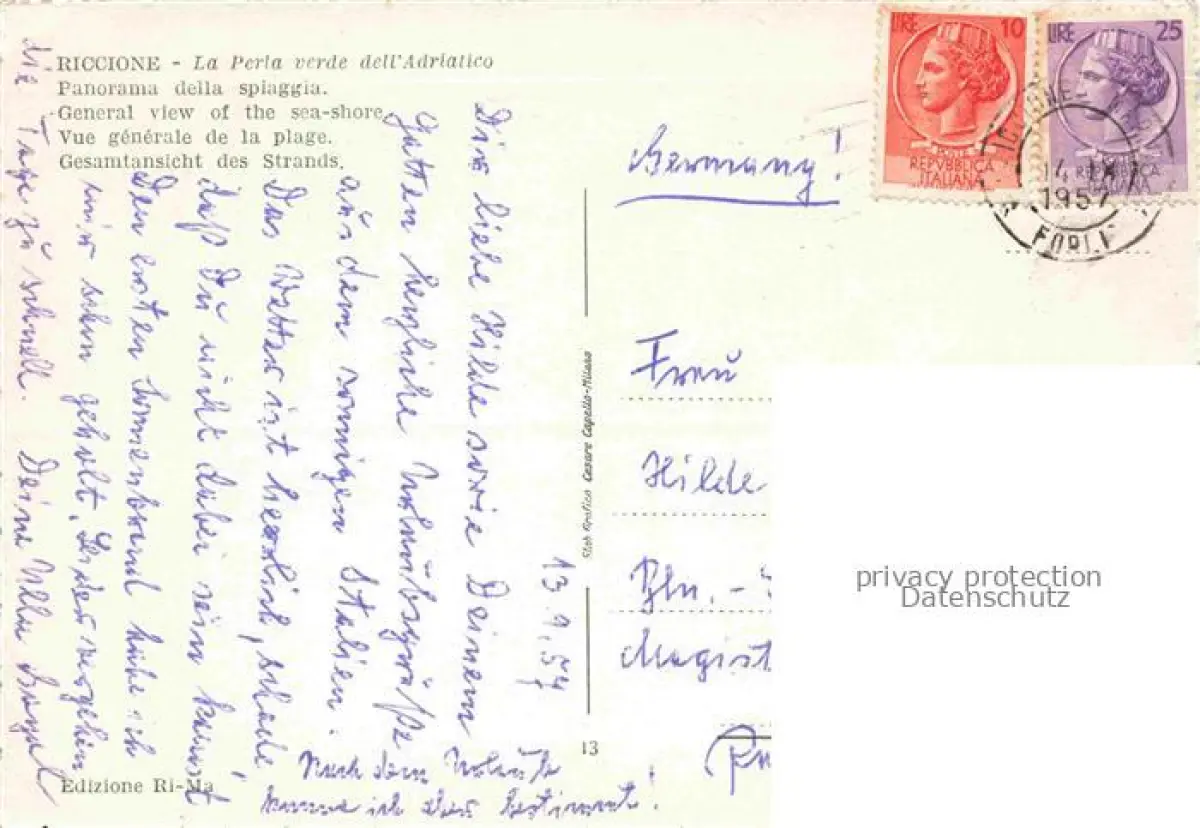 RICCIONE - La Perla verde dell'Adriatico
Panorama della spiaggia.
General view of the sea-shore.
Vue générale de la plage.
Gesamtansicht des Strands.
13.9.57
Dir liebe Hilde sowie Deinem
Gatten herzliche Urlaubsgrüße
aus dem sonnigen Italien.
Das Wetter ist herrlich, schade
daß Du nicht dabei sein kannst
Den ersten Sonnenbrand habe ich
mir schon geholt. Leider vergehen
die Tage zu schnell. Deine
Nach dem Urlaub
komme ich bestimmt!
Edizione Ri-Ma
13
Stab Grafico Cesare Capello-Milano
LIRE 10
POSTE
REPVBBLICA
ITALIANA
LIRE 25
REPVBBLICA
ITALIANA
14 IX
1957
FORLI
Germany!
Frau
Hilde
Bln. -
Magist
privacy protection
Datenschutz